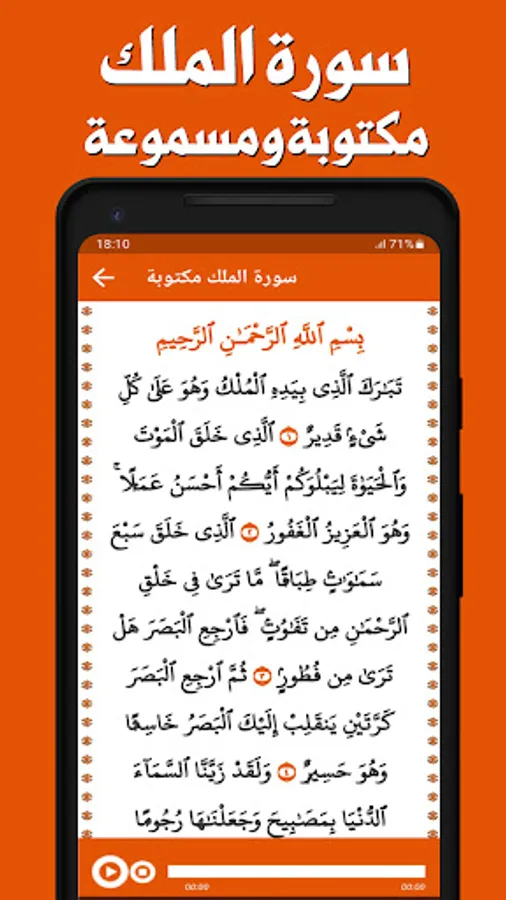 سورة الملك
مكتوبة ومسموعة
18:10 71%
سورة الملك مكتوبة
بِسْمِ ٱللَّهِ ٱلرَّحْمَـٰنِ ٱلرَّحِيمِ
تَبَـٰرَكَ ٱلَّذِى بِيَدِهِ ٱلْمُلْكُ وَهُوَ عَلَىٰ كُلِّ
شَىْءٍ قَدِيرٌ ١ ٱلَّذِى خَلَقَ ٱلْمَوْتَ
وَٱلْحَيَوٰةَ لِيَبْلُوَكُمْ أَيُّكُمْ أَحْسَنُ عَمَلًا ۚ
وَهُوَ ٱلْعَزِيزُ ٱلْغَفُورُ ٢ ٱلَّذِى خَلَقَ سَبْعَ
سَمَـٰوَٰتٍ طِبَاقًا ۖ مَّا تَرَىٰ فِى خَلْقِ
ٱلرَّحْمَـٰنِ مِن تَفَـٰوُتٍ ۖ فَٱرْجِعِ ٱلْبَصَرَ هَلْ
تَرَىٰ مِن فُطُورٍ ٣ ثُمَّ ٱرْجِعِ ٱلْبَصَرَ
كَرَّتَيْنِ يَنقَلِبْ إِلَيْكَ ٱلْبَصَرُ خَاسِئًا
وَهُوَ حَسِيرٌ ٤ وَلَقَدْ زَيَّنَّا ٱلسَّمَآءَ
ٱلدُّنْيَا بِمَصَـٰبِيحَ وَجَعَلْنَـٰهَا رُجُومًا
00:00 00:00